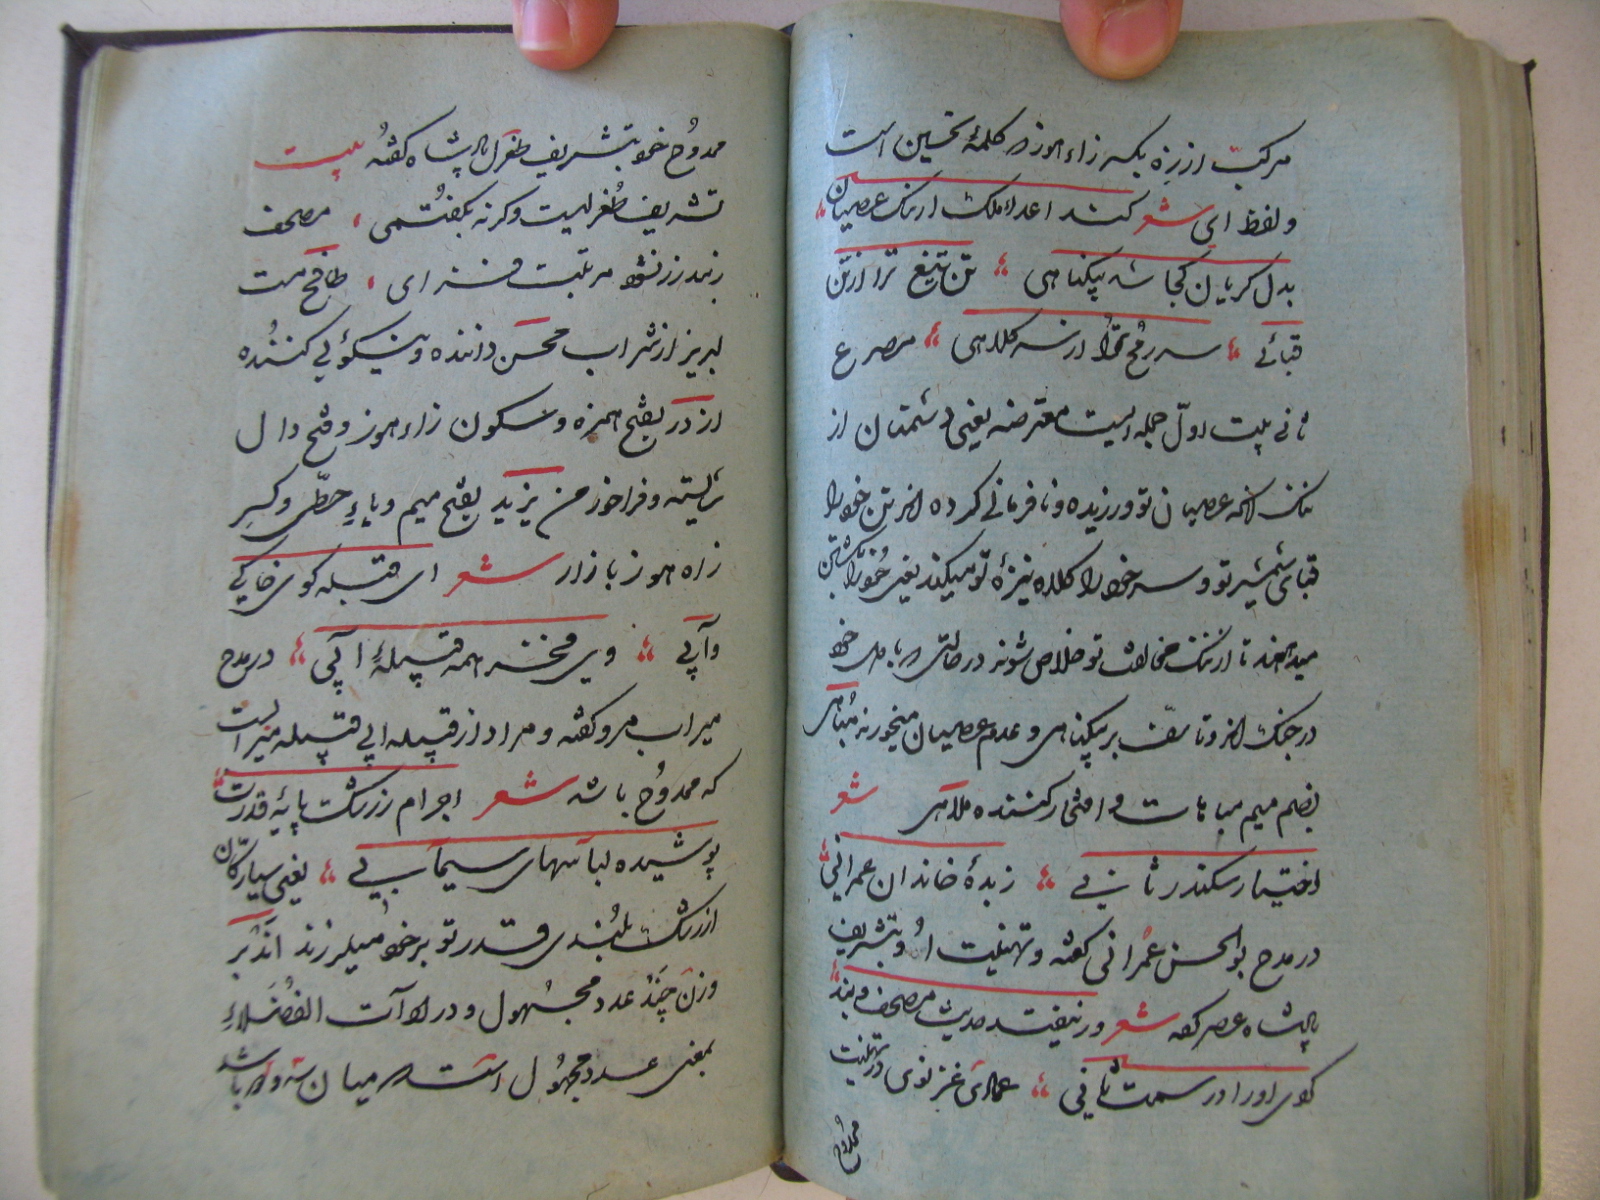 مرکبت از زه بکسر زاء هوز و کلمهٔ تحسین است
و لفظ ای شعر کنند اعداء ملکت از ننک عصیان
بدل کریان کجا شه بیکناهی تن تیغ ترا از تن
قبائی سر رمح ترا از سر کلاهی مصرع
ثانی بیت اول جمله ایست معترضه یعنی دشمنان از
ننک آنکه عصیان تو ورزیده و نافرمانی کرده اند تن خود را
قبای شمشیر تو و سر خود را کلاه نیزهٔ تو میکنند یعنی خود را بکشتن
میدهند تا از ننک مخالفت تو خلاص شوند در حالتی که با دل خود
در جنک اند و تاسف بر بیکناهی و عدم عصیان میخورند مباهی
بضم میم مباهات و افتخار کننده ملاهی شعر
اختیار سکندر ثانی زبدهٔ خاندان عمرانی
در مدح بوالحسن عمرانی کفته و تهنیت او بتشریف
پادشاه عصر کفته شعر ور نیفتد حدیث مصحف و بند
کوی او را در سمت ثانی عمادی غزنوی در تهنیت
ممدوح
ممدوح خود بتشریف طغرل پادشاه کفته بیت
تشریف طغرلیت وکرنه بکفتمی مصحف
زبند زر نشود مرتبت فزای طافح مست
لبریز از شراب محسن داننده و نیکوئی کننده
ازدر بفتح همزه و سکون زاء هوز و فتح دال
شایسته و فراخور من یزید بفتح میم و یاء حطی و کسر
زاء هوز بازار شعر ای قبله کوی خاکی
وآبی وی مفخر همه قبیلهٔ آبی در مدح
میراب مرو کفته و مراد از قبیله ابی قبیله میرابست
که ممدوح باشد شعر اجرام ز رشک پایهٔ قدرت
پوشیده لباسهای سیمابی یعنی سیارکان
از رشک بلندی قدر تو بر خود میلرزند اند بر
وزن چند عدد مجهول و در ادات الفضلاء
بمعنی عدد مجهول است که میان سه و ده باشد